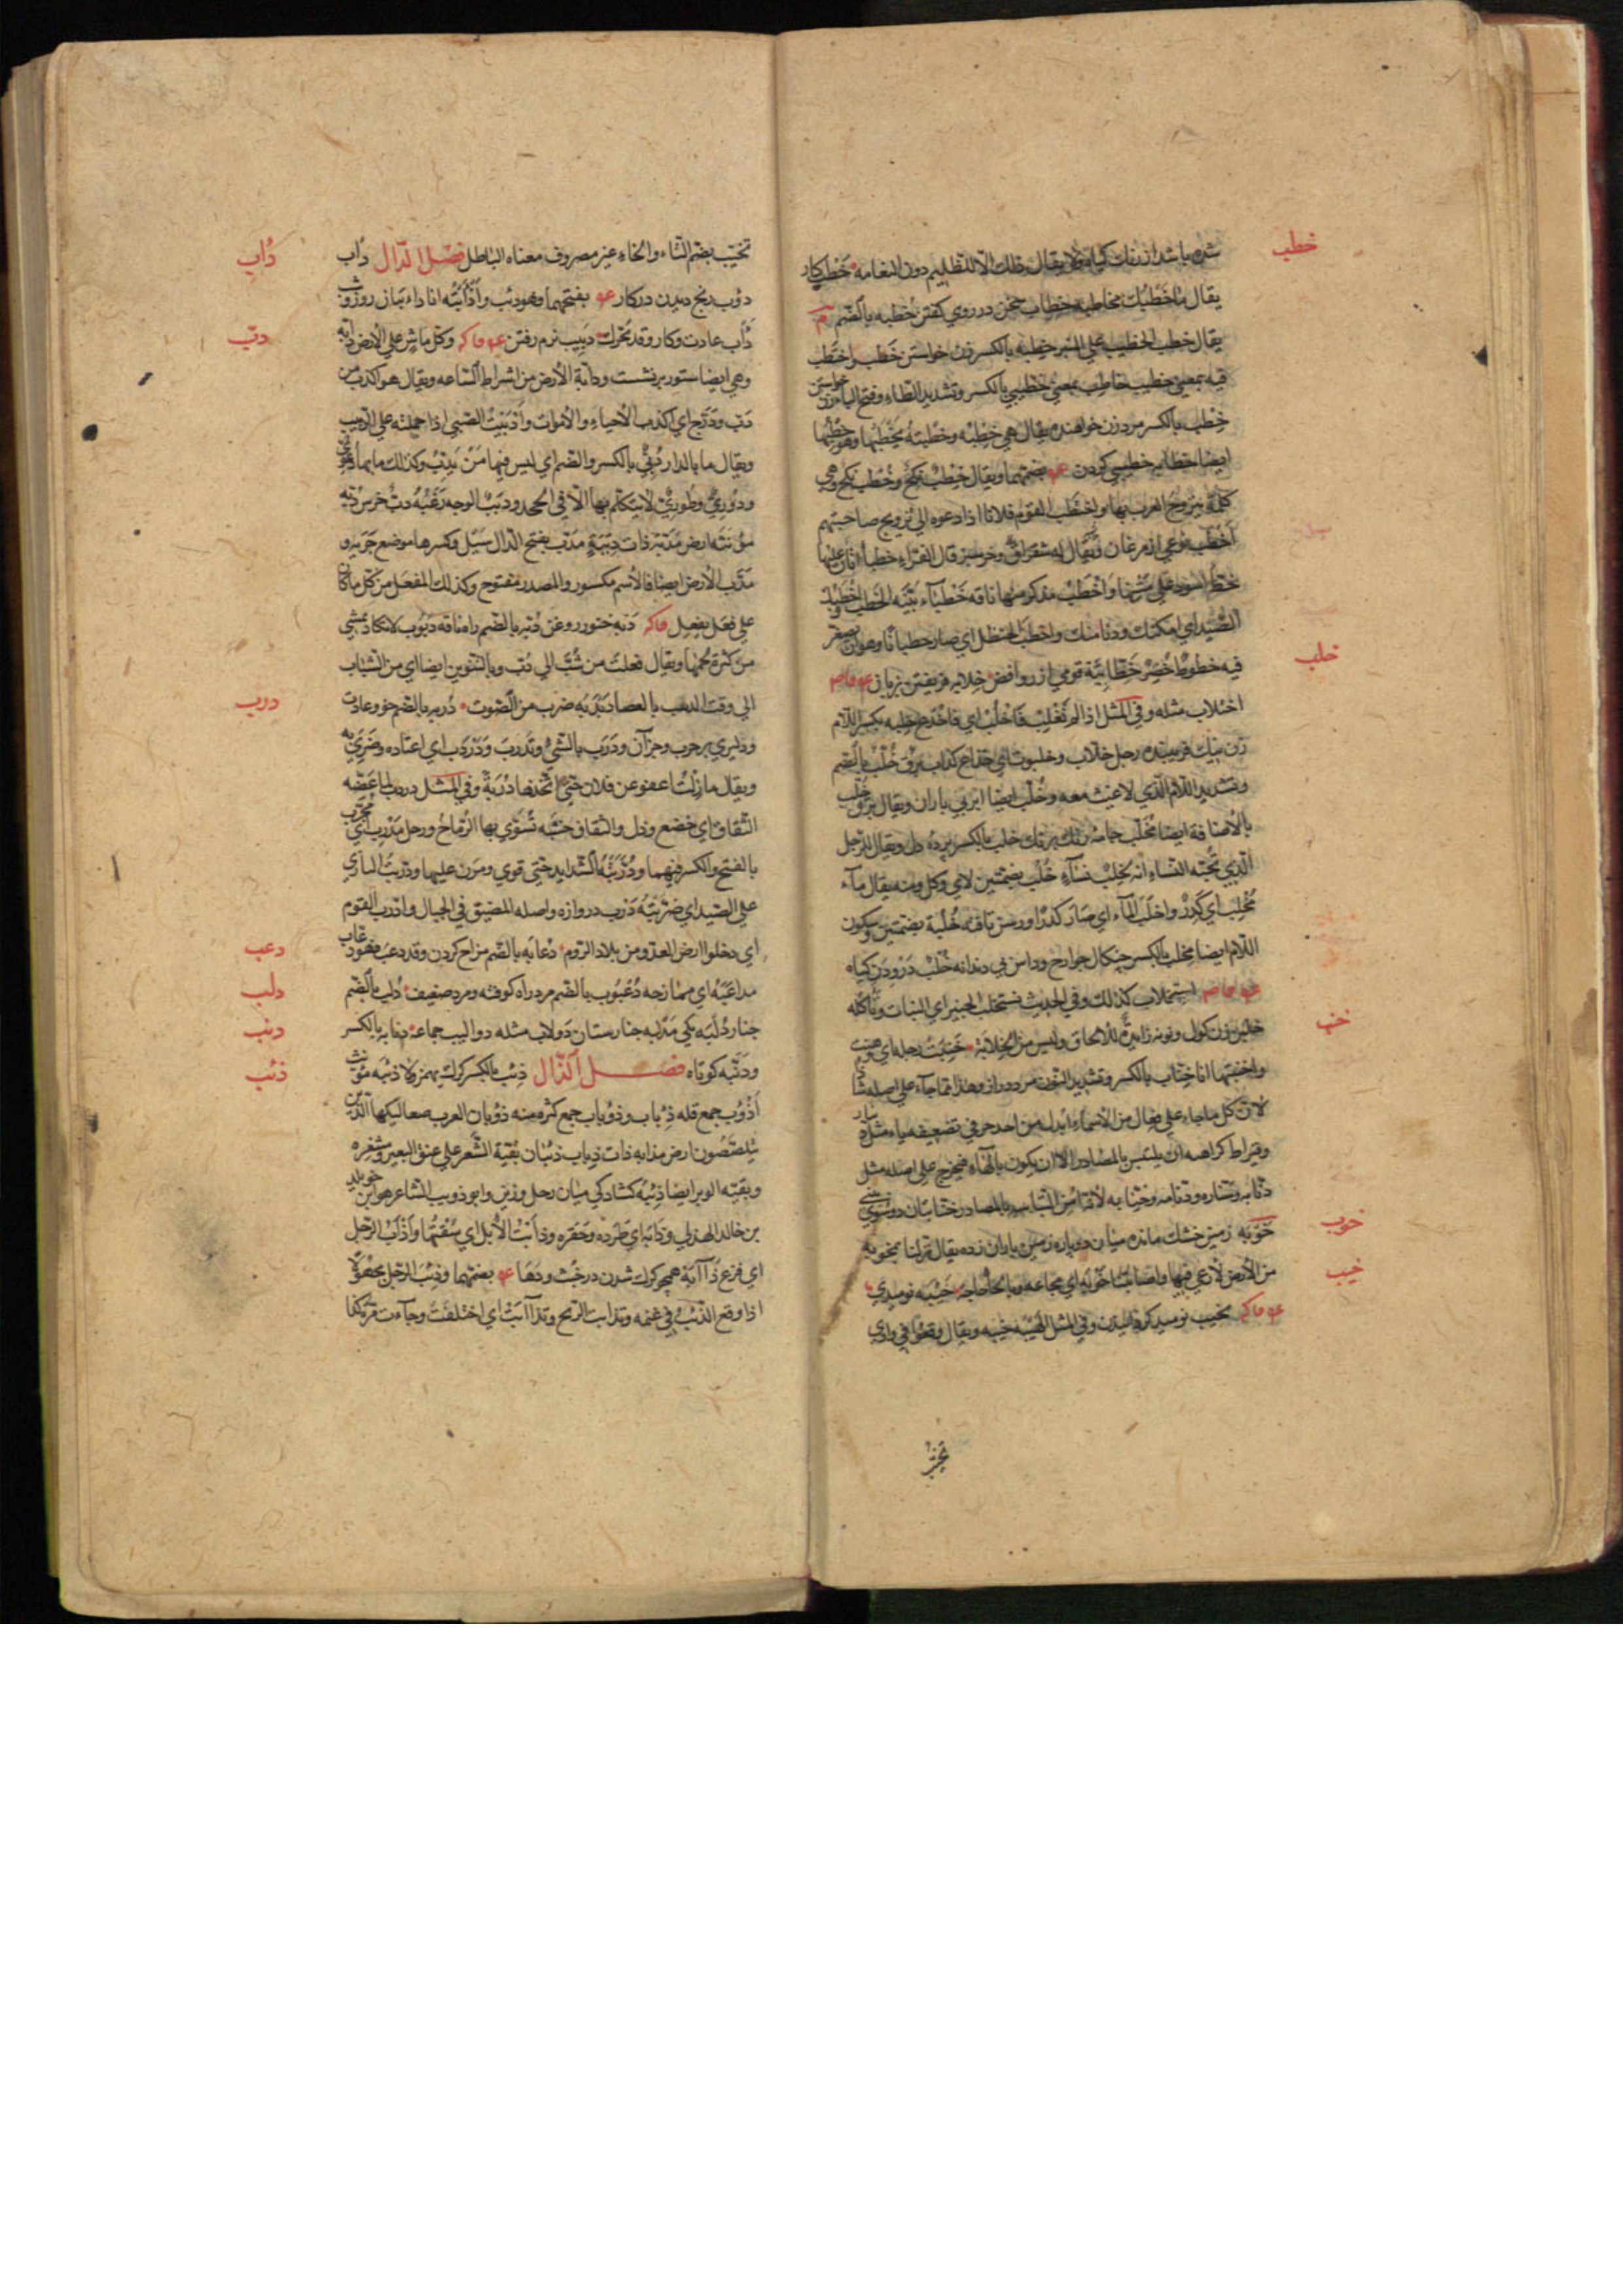 خطب
شده باشد از رنك كياه ولا يقال ذلك الا للظليم دون النعامه خطب كار
يقال ما خطبك مخاطبه خطاب سخن در روي كفتن خطبه بالضم م
يقال خطب الخطيب علي المنبر خطبه بالكسر زن خواستن خطب واختطب
فيه بمعني خطيب خاطب بمعني خطيبي بالكسر وتشديد الطاء وفتح الباء زن خواستن
خطب بالكسر مرد زن خواهنده يقال هي خطبه وخطبته يخطبها وهو خطبها
ايضا خطابه خطيبي كردن بضمهما ويقال خطب نكح وخطب نكح وهي
كلمة يتزوج العرب بها واختطب القوم فلانا اذا دعوه الي تزويج صاحبتهم
اخطب نوعي از مرغان ويقال له شقراق وخر سبز قال الفراء خطباء اتان عليها
خط اسود علي متنها واخطب مذكر منها ناقه خطباء بينه الخطب اخطبك
الصيد اي امكنك ودنا منك واخطب الحنظل اي صار خطبانا وهو ان يصفر
خلب
فيه خطوط خضر خطابية قومي از روافض خلابه فريفتن بزبان
اختلاب مثله وفي المثل اذا لم تغلب فاخلب اي فاخدع خلبه بكسر اللام
زن نيك فريبنده رجل خلاب وخلبوت اي خداع كذاب برق خلب بالضم
وتشديد اللام الذي لا غيث معه وخلب ايضا ابر بي باران ويقال برق خلب
بالاضافة ايضا مخلب جامه رنك برنك خلب بالكسر پرده دل ويقال للرجل
الذي تحبه النساء انه لخلب نساء خلب بضمتين لاي وكل ومنه يقال ماء
مخلب اي كدر واخلب الماء اي صار كدرا ورسن تافته خلبة بضمتين وسكون
اللام ايضا مخلب بالكسر چنكال جوارح وداس بي دندانه خلب درودن كياه
استخلاب كذلك وفي الحديث نستخلب الخبير اي النبات ونأكله
خنب
خلبن زن كول ونونه زايدة للالحاق وليس من الخلابة خنبت رجله اي وهنت
واخنبتها انا خناب بالكسر وتشديد النون مرد دراز وهذا مما جاء علي اصله شاذ
لان كل ما جاء علي فعال من الاسماء ابدل من احد حرفي تضعيفه ياء مثل دينار
وقيراط كراهه ان يلتبس بالمصادر الا ان يكون بالهاء فيخرج علي اصله مثل
دنابه وصنارة ودنامه وخنابه لانه امن التباسه بالمصادر خنابتان دو سوي بيني
خوب
خوبه زمين خشك مانده ميان دو پاره زمين باران زده يقال نزلنا بخوبه
خيب
من الارض لا رعي فيها واصابتنا خوبه اي مجاعه وبالحا حاجه خيبه نوميدي
تخييب نوميد كردانيدن وفي المثل الهيبه خيبه ويقال وقعوا في وادي
تخيب
تخيب بضم التاء والخاء غير مصروف معناه الباطل فصل الدال داب
داب
دؤب رنج ديدن در كار بفتحهما وهو دئب وادأبته انا دائبان روز وشب
دبب
دأب عادت وكار وقد يحرك دبيب نرم رفتن وكل ماش علي الارض دابه
وهي ايضا ستور برنشست ودابة الارض من اشراط الساعه ويقال هو اكذب من
دب ودرج اي اكذب الاحياء والاموات وادببت الصبي اذا حملته علي الدبيب
ويقال ما بالدار دبي بالكسر والضم اي ليس فيها من يدب وكذلك ما بها دعوي
ودوري وطوري لا يتكلم بها الا في الجحد ودبب الوجه زغبه دب خرس دبه
مؤنثه ارض مدبة ذات دببة مدب بفتح الدال سيل وكسرها موضع جريه و
مدب الارض ايضا فالاسم مكسور والمصدر مفتوح وكذلك المفعل من كل ما كان
علي فعل يفعل دبه خنور روغن دبه بالضم راه ناقه دبوب لا تكاد تمشي
من كثرة لحمها ويقال فعلت من شب الي دب وبالتنوين ايضا اي من الشباب
درب
الي وقت الدبيب بالعصا دبدبه ضرب من الصوت دربه بالضم خو وعادت
ودليري بر حرب وجز آن ودرب بالشي وتدرب ودردب اي اعتاده وضري به
ويقال ما زلت اعفو عن فلان حتي اتخذها دربة وفي المثل دردب لما عضه
الثقاف اي خضع وذل والثقاف خشبه تسوي بها الرماح ورجل مدرب اي مجرب
بالفتح والكسر فيهما ودربته الشدايد حتي قوي ومرن عليها ودربت البازي
علي الصيد اي ضريته درب دروازه واصله المضيق في الجبال وادرب القوم
دعب
اي دخلوا ارض العدو من بلاد الروم دعابه بالضم مزاح كردن وقد دعب فهو دعاب
دلب
مداعبه اي ممازحه دعبوب بالضم مرد راه كوفته ومرد ضعيف دلب بالضم
دنب
چنار دلبه يكي مدلبه چنارستان دولاب مثله دواليب جماعه دنابه بالكسر
ذئب
ودنبه كوتاه فصل الذال ذئب بالكسر كرك يهمز ولا ذئبه مؤنث
اذوب جمع قله ذياب وذؤبان جمع كثره منه ذؤبان العرب صعاليكها الذين
يتلصصون ارض مذابه ذات ذياب ذئبان بقية الشعر علي عنق البعير ومشفره
وبقيته الوبر ايضا ذئبه كشادكي ميان رحل وزين وابو ذويب الشاعر هو ابن خويلد
بن خالد الهذلي وذأبه اي طرده وحقره وذأبت الابل اي سقتها واذأب الرجل
اي فزع ذآبة همچو كرك شدن در خبث ودها بضمهما وذئب الرجل مجهولا
اذا وقع الذئب في غنمه وتذأبت الريح وتذاأبت اي اختلفت وجاءت مرة كذا